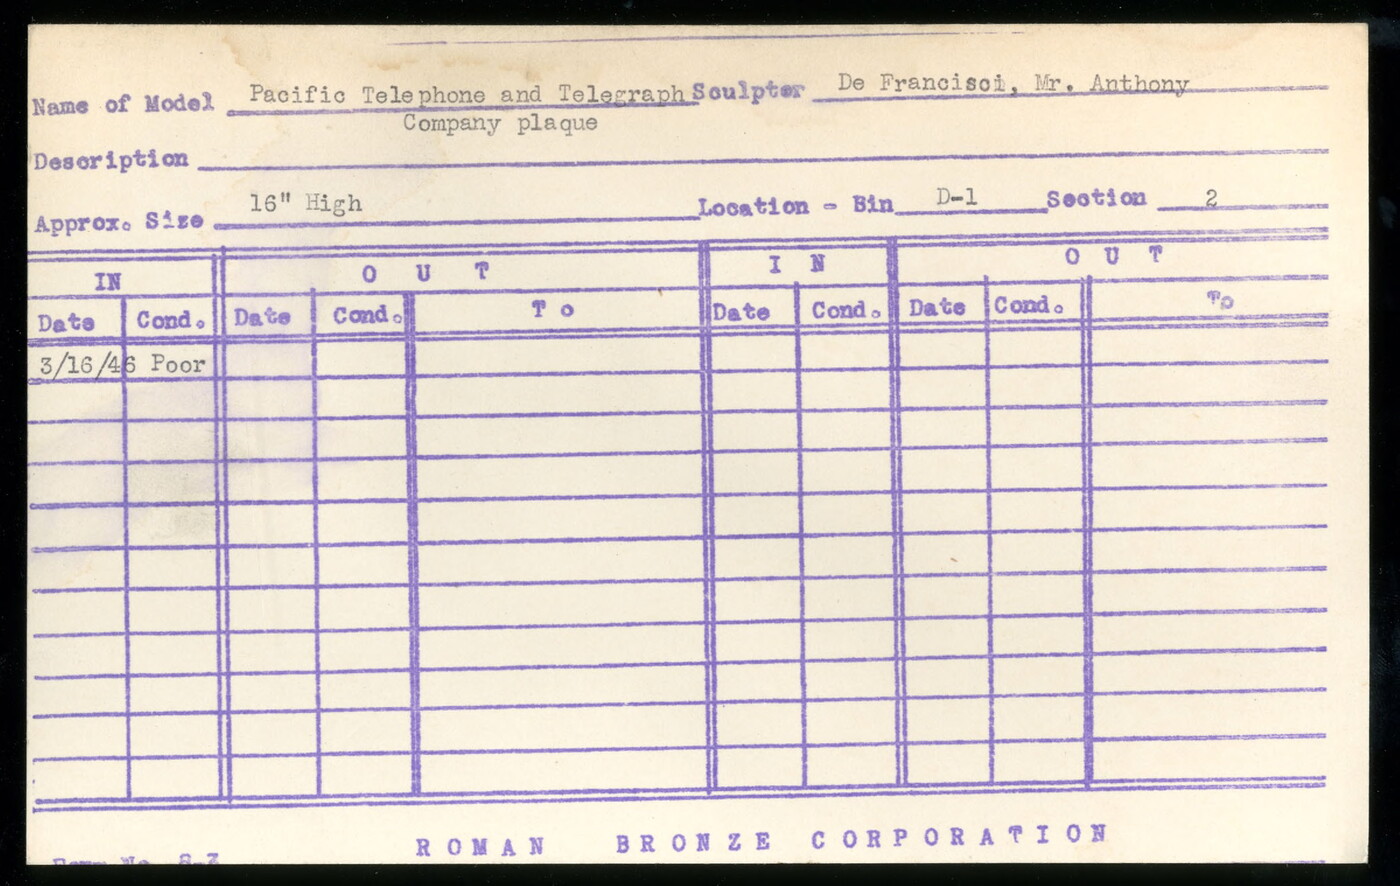 Name of Model Pacific Telephone and Telegraph Sculptor De Francisci, Mr. Anthony
Company plaque
Description
Approx. Size 16" High Location - Bin D-1 Section 2
IN O U T I N O U T
Date Cond. Date Cond. To Date Cond. Date Cond. To
3/16/46 Poor
ROMAN BRONZE CORPORATION
Form No. 8-3